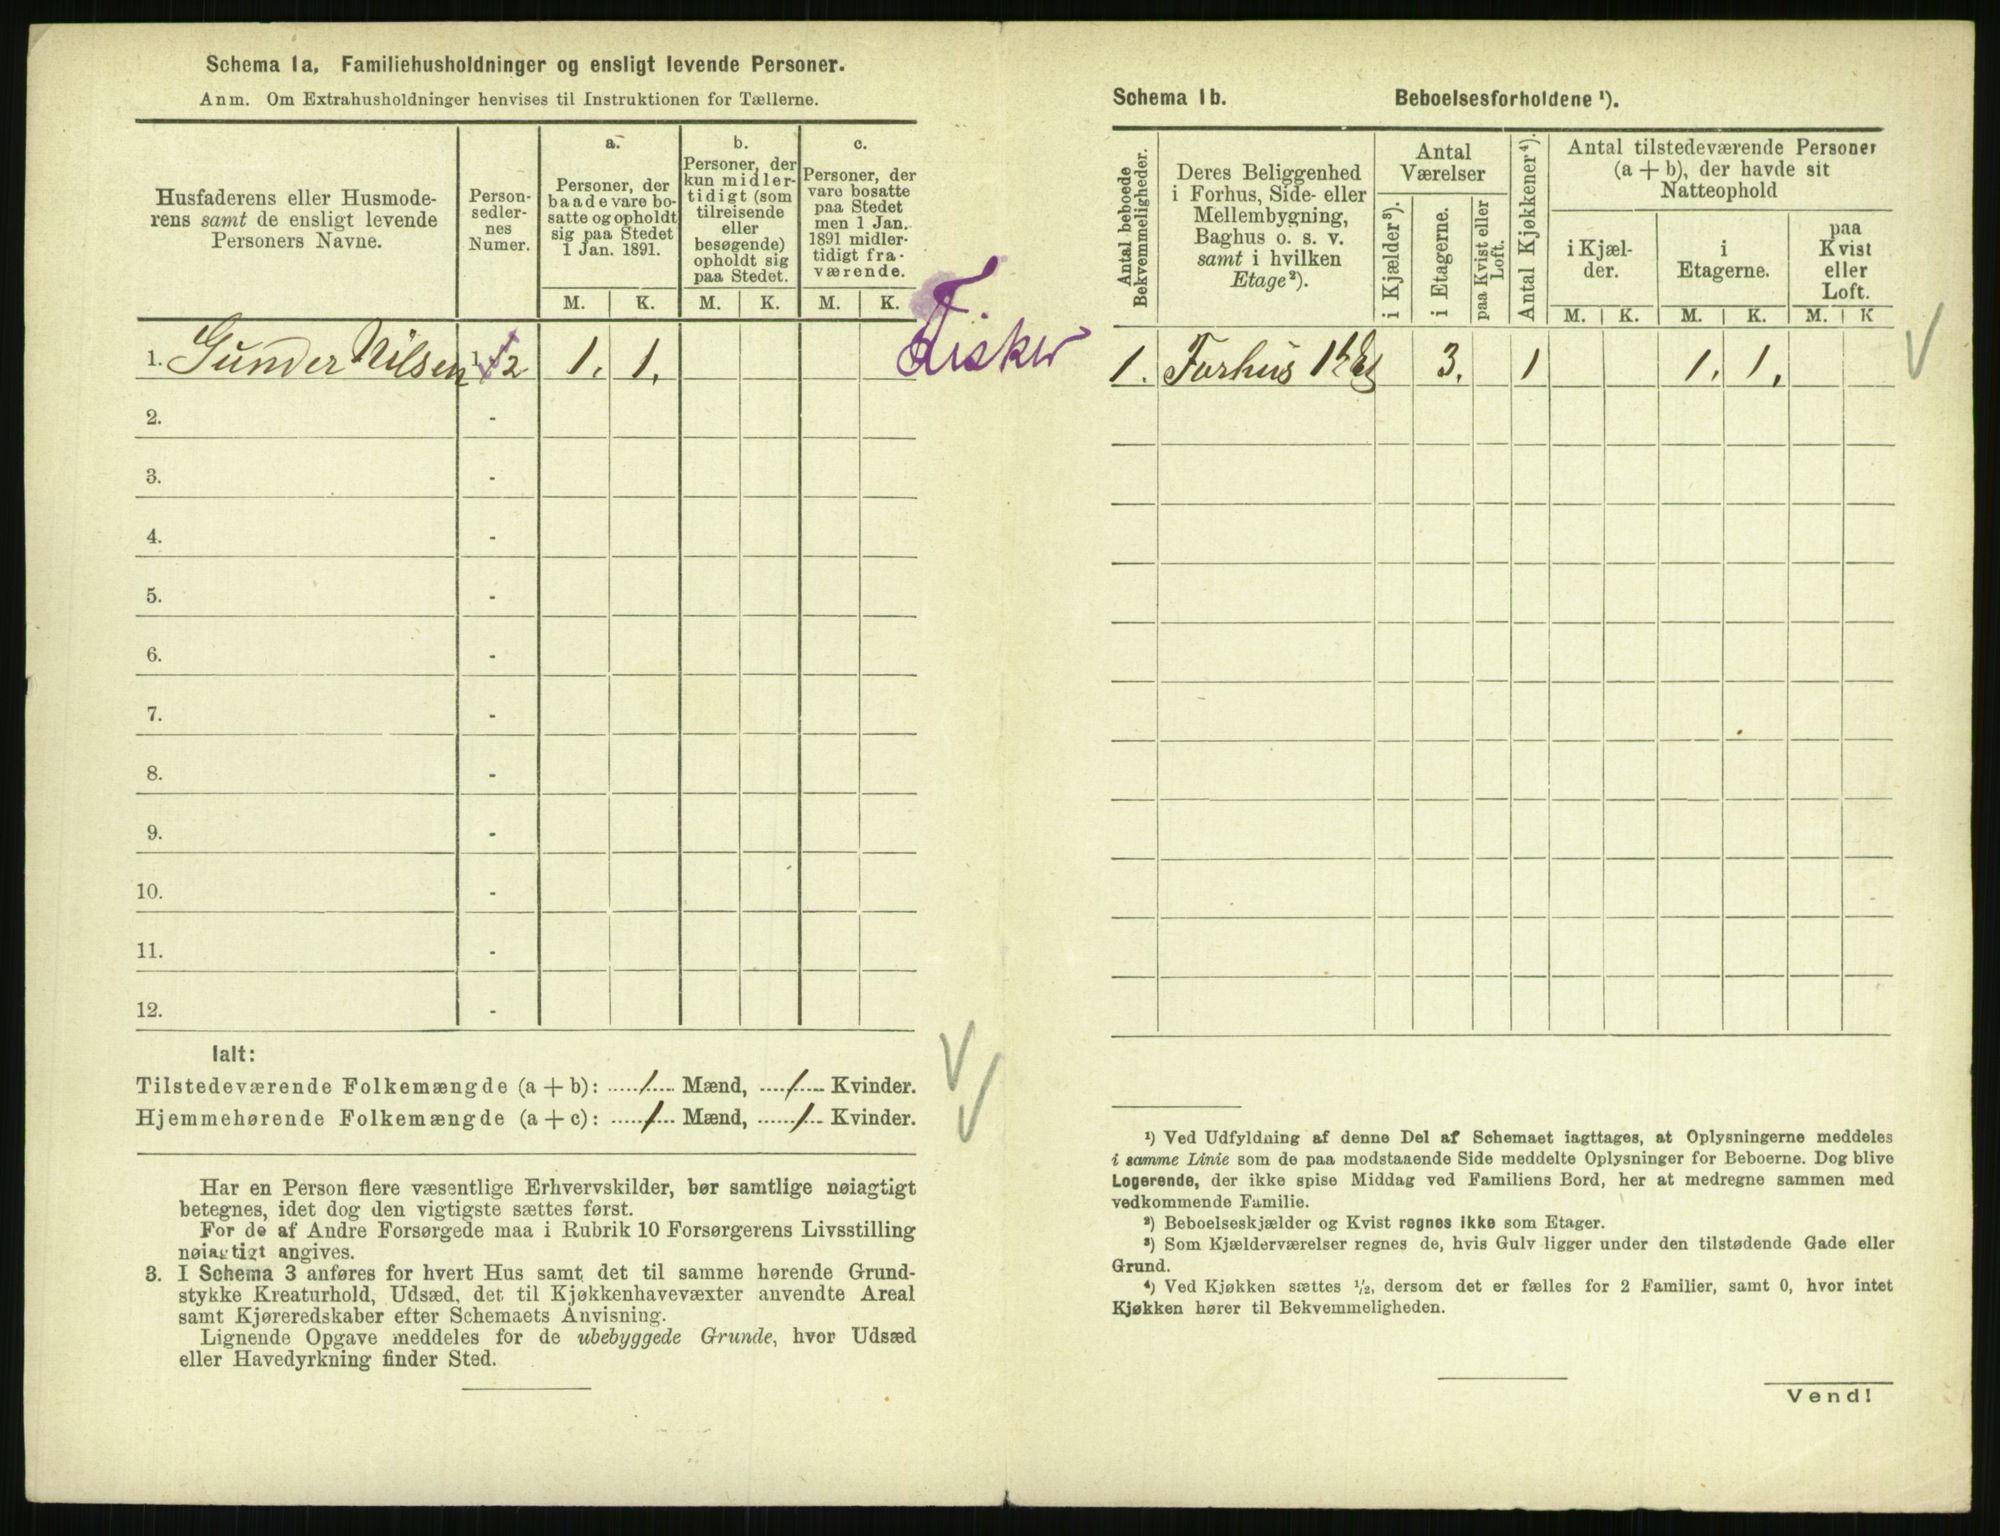 Schema 1a. Familiehusholdninger og ensligt levende Personer.
Anm. Om Extrahusholdninger henvises til Instruktionen for Tællerne.
Husfaderens eller Husmode-
rens samt de ensligt levende
Personers Navne.
Person-
sedler-
nes
Numer.
a.
Personer, der
baade vare bo-
satte og opholdt
sig paa Stedet
1 Jan. 1891.
b.
Personer, der
kun midler-
tidigt (som
tilreisende
eller
besøgende)
opholdt sig
paa Stedet.
c.
Personer, der
vare bosatte
paa Stedet
men 1 Jan.
1891 midler-
tidigt fra-
værende.
M. K. M. K. M. K.
1. Gunder Nilsen 1 2 1. 1.
Fisker
2. -
3. -
4. -
5. -
6. -
7. -
8. -
9. -
10. -
11. -
12. -
Ialt:
Tilstedeværende Folkemængde (a + b): ....1.... Mænd, ....1.... Kvinder.
Hjemmehørende Folkemængde (a + c): ....1.... Mænd, ....1.... Kvinder.
Har en Person flere væsentlige Erhvervskilder, bør samtlige nøiagtigt
betegnes, idet dog den vigtigste sættes først.
For de af Andre Forsørgede maa i Rubrik 10 Forsørgerens Livsstilling
nøiagtigt angives.
3. I Schema 3 anføres for hvert Hus samt det til samme hørende Grund-
stykke Kreaturhold, Udsæd, det til Kjøkkenhavevæxter anvendte Areal
samt Kjøreredskaber efter Schemaets Anvisning.
Lignende Opgave meddeles for de ubebyggede Grunde, hvor Udsæd
eller Havedyrkning finder Sted.
Schema 1b. Beboelsesforholdene ¹).
Antal beboede
Bekvemmeligheder.
Deres Beliggenhed
i Forhus, Side- eller
Mellembygning,
Baghus o. s. v.
samt i hvilken
Etage²).
Antal
Værelser
i Kjælder³).
i Etagerne.
paa Kvist eller
Loft.
Antal Kjøkkener⁴).
Antal tilstedeværende Personer
(a + b), der havde sit
Natteophold
i Kjæl-
der.
i
Etagerne.
paa
Kvist
eller
Loft.
M. K. M. K. M. K
1. Forhus 1ste Etg 3. 1 1. 1.
¹) Ved Udfyldning af denne Del af Schemaet iagttages, at Oplysningerne meddeles
i samme Linie som de paa modstaaende Side meddelte Oplysninger for Beboerne. Dog blive
Logerende, der ikke spise Middag ved Familiens Bord, her at medregne sammen med
vedkommende Familie.
²) Beboelseskjælder og Kvist regnes ikke som Etager.
³) Som Kjælderværelser regnes de, hvis Gulv ligger under den tilstødende Gade eller
Grund.
⁴) Ved Kjøkken sættes ½, dersom det er fælles for 2 Familier, samt 0, hvor intet
Kjøkken hører til Bekvemmeligheden.
Vend!